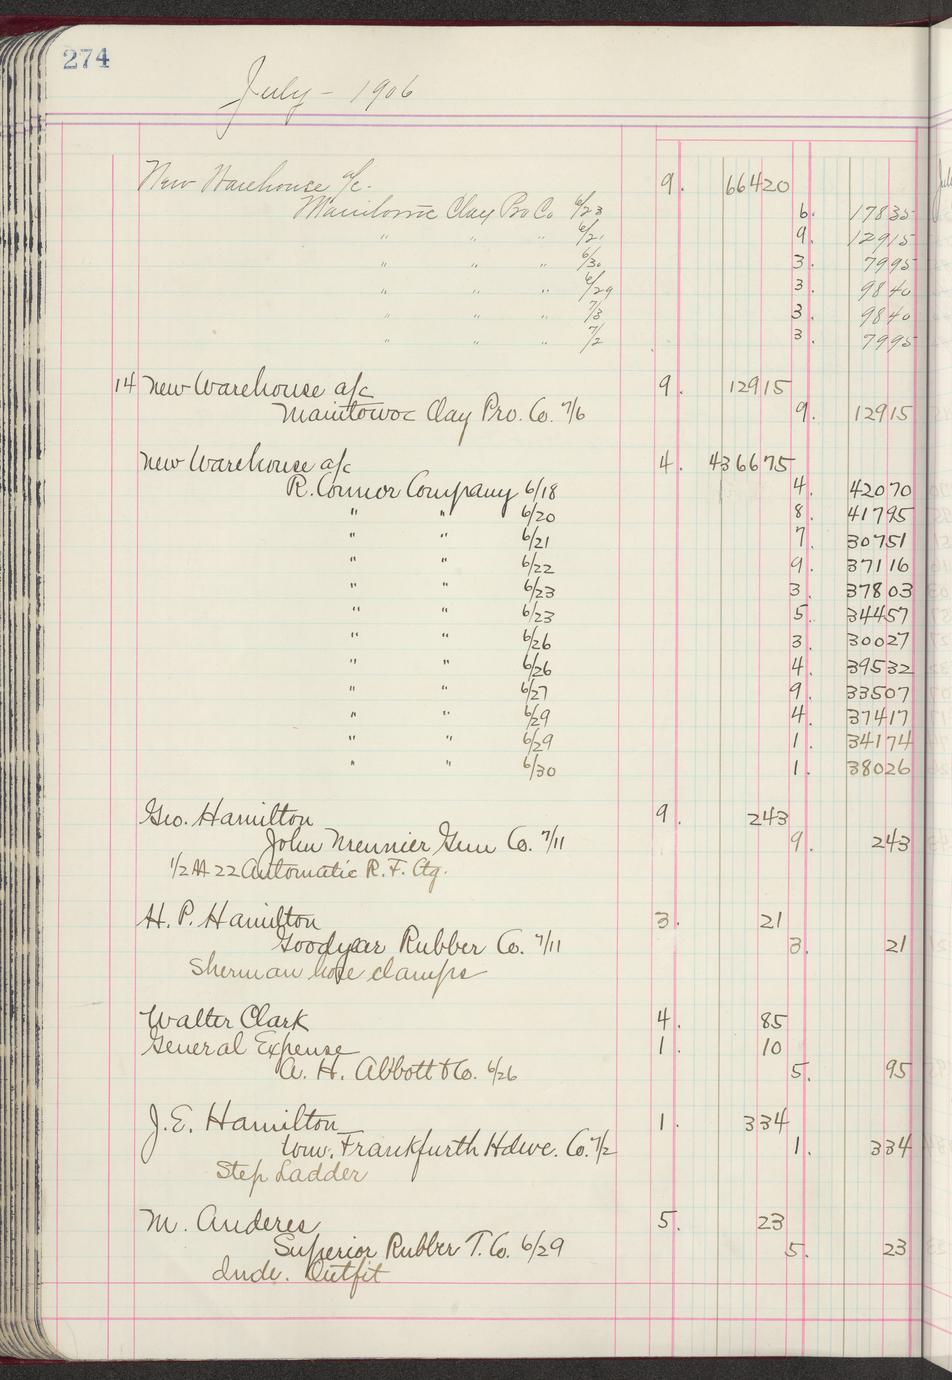 274
July - 1906
New Warehouse a/c. 9. 66420
Manitowoc Clay Pro Co 6/23 6. 17835
" " " 6/21 9. 12915
" " " 6/30 3. 7995
" " " 6/29 3. 9840
" " " 7/3 3. 9840
" " " 7/2 3. 7995
14 New Warehouse a/c 9. 12915
Manitowoc Clay Pro. Co. 7/6 9. 12915
New Warehouse a/c 4. 436675
R. Connor Company 6/18 4. 42070
" " 6/20 8. 41795
" " 6/21 7. 30751
" " 6/22 9. 37116
" " 6/23 3. 37803
" " 6/23 5. 34457
" " 6/26 3. 30027
" " 6/26 4. 39532
" " 6/27 9. 33507
" " 6/29 4. 37417
" " 6/29 1. 34174
" " 6/30 1. 38026
Geo. Hamilton 9. 243
John Meunier Gun Co. 7/11 9. 243
1/2 M 22 Automatic R. F. Ctg.
H. P. Hamilton 3. 21
Goodyear Rubber Co. 7/11 3. 21
Sherman hose clamps
Walter Clark 4. 85
General Expense 1. 10
A. H. Abbott & Co. 6/26 5. 95
J. E. Hamilton 1. 334
Wm. Frankfurth Hdwe. Co. 7/2 1. 334
Step Ladder
M. Anderes 5. 23
Superior Rubber T. Co. 6/29 5. 23
Inde. Outfit